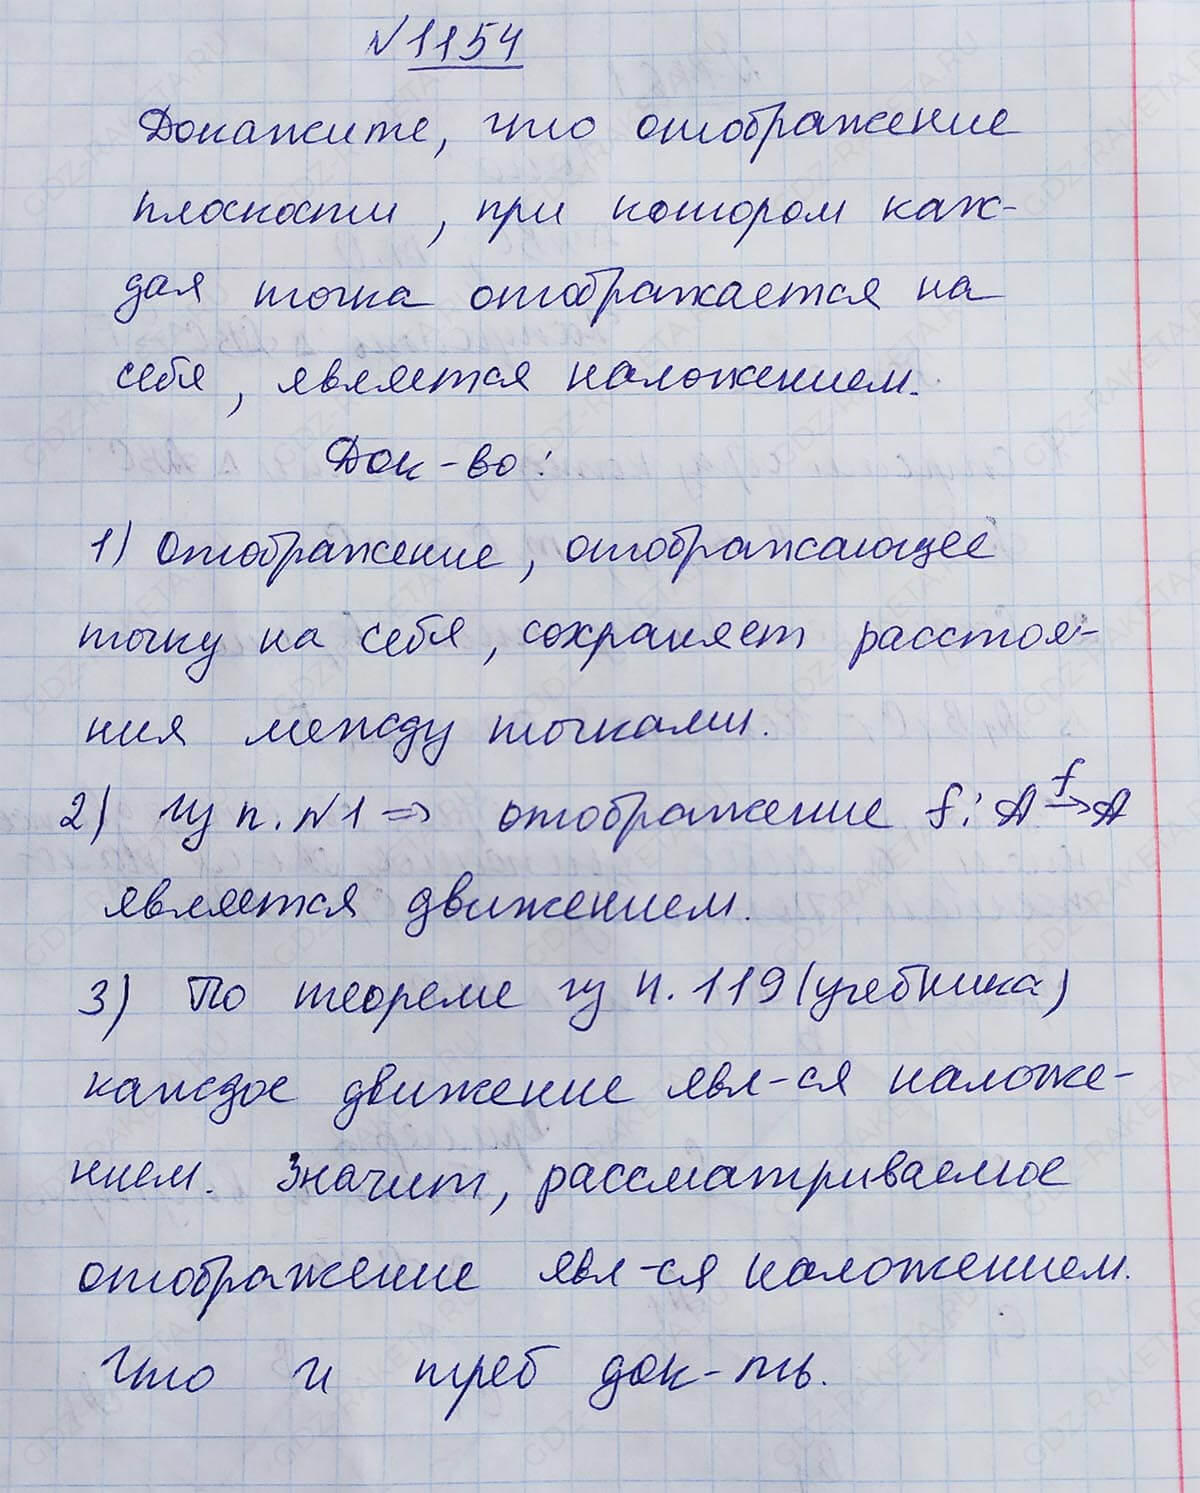 №1154
Докажите, что отображение
плоскости, при котором каж-
дая точка отображается на
себя, является наложением.
Док-во:
1) Отображение, отображающее
точку на себя, сохраняет расстоя-
ния между точками.
2) Из п. №1 => отображение f: A →f A
является движением.
3) По теореме из п. 119 (учебника)
каждое движение явл-ся наложе-
нием. Значит, рассматриваемое
отображение явл-ся наложением.
Что и треб док-ть.